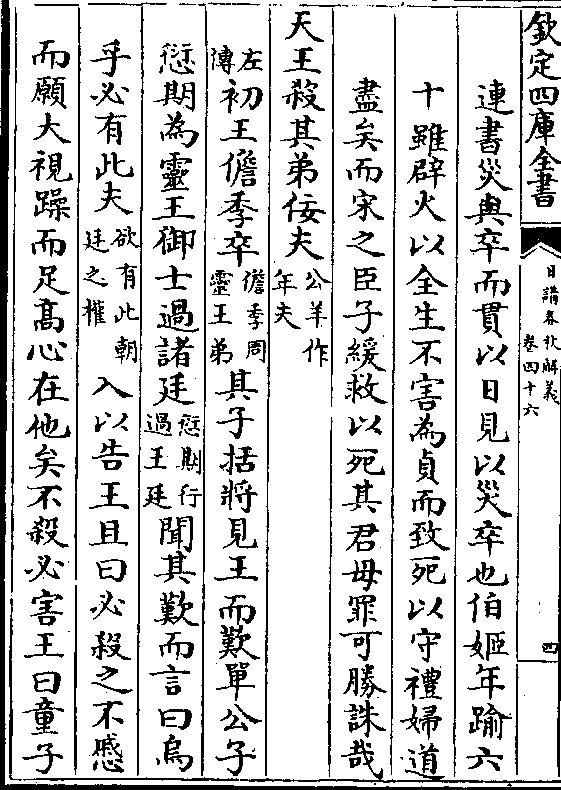 欽定四庫全書
日講春秋解義
卷四十六
四
連書災與卒而貫以日見以災卒也伯姬年踰六
十雖辟火以全生不害為貞而致死以守禮婦道
盡矣而宋之臣子緩救以死其君母罪可勝誅哉
天王殺其弟佞夫公羊作年夫
左傳初王儋季卒儋季周靈王弟其子括將見王而歎單公子
愆期為靈王御士過諸廷愆期行過王廷聞其歎而言曰烏
乎必有此夫欲有此朝廷之權入以告王且曰必殺之不慼
而願大視躁而足髙心在他矣不殺必害王曰童子